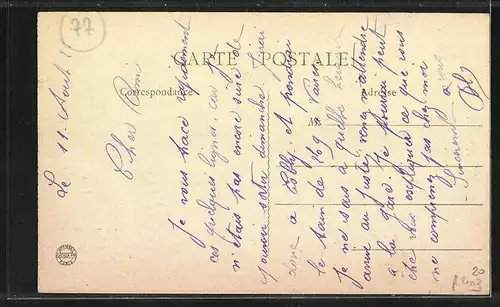 77
CARTE POSTALE
Correspondance
Adresse
Le 11. Août
Cher Ami
Je vous trace rapidement
ces quelques lignes, car je
n'étais pas encore sûre de
pouvoir sortir dimanche j'irai
donc à et prendrai
le train de
Je ne sais à quelle heure
arrive au juste, venez m'attendre
à la gare. Je pourrai peut
être vous expliquer ce que vous
ne comprenez pas chez moi
Sincèrement à vous
20